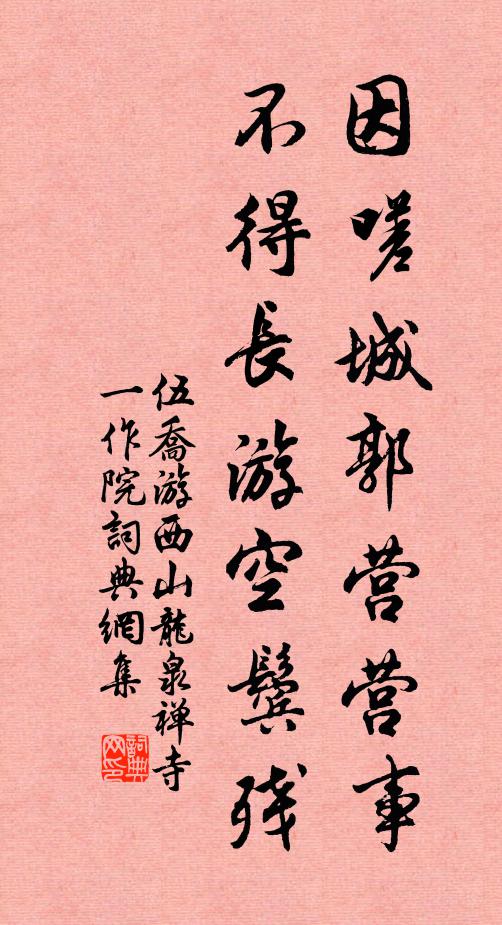 因嗟城郭营营事
不得長游空鬓残
伍喬游西山龍泉禅寺
一作院詞典網集
詞典网印